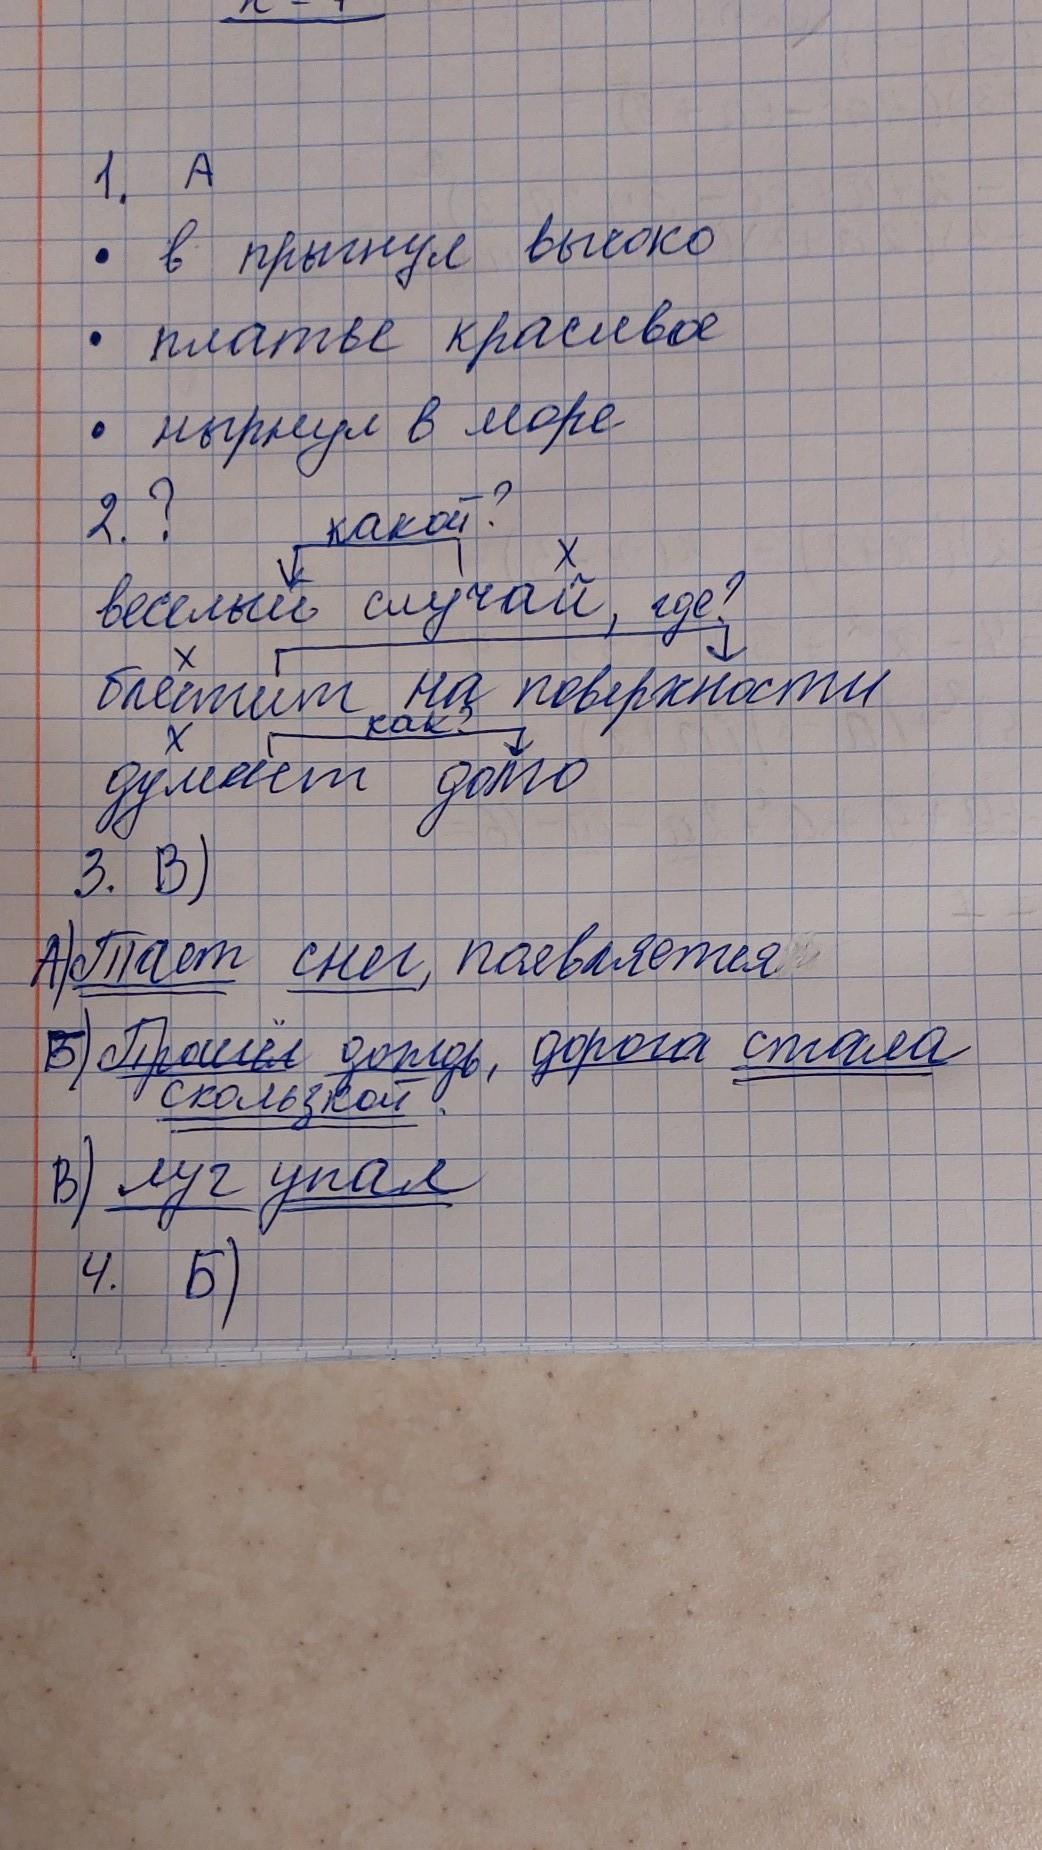 1. А
• в прыгнул высоко
• платье красивое
• нырнул в море
2. ?
какой?
х
веселый случай, где?
х
блестит на поверхности
х как?
думает долго
3. В)
А) Тает снег, появляется
Б) Прошёл дождь, дорога стала
скользкой.
В) луг упал
4. Б)